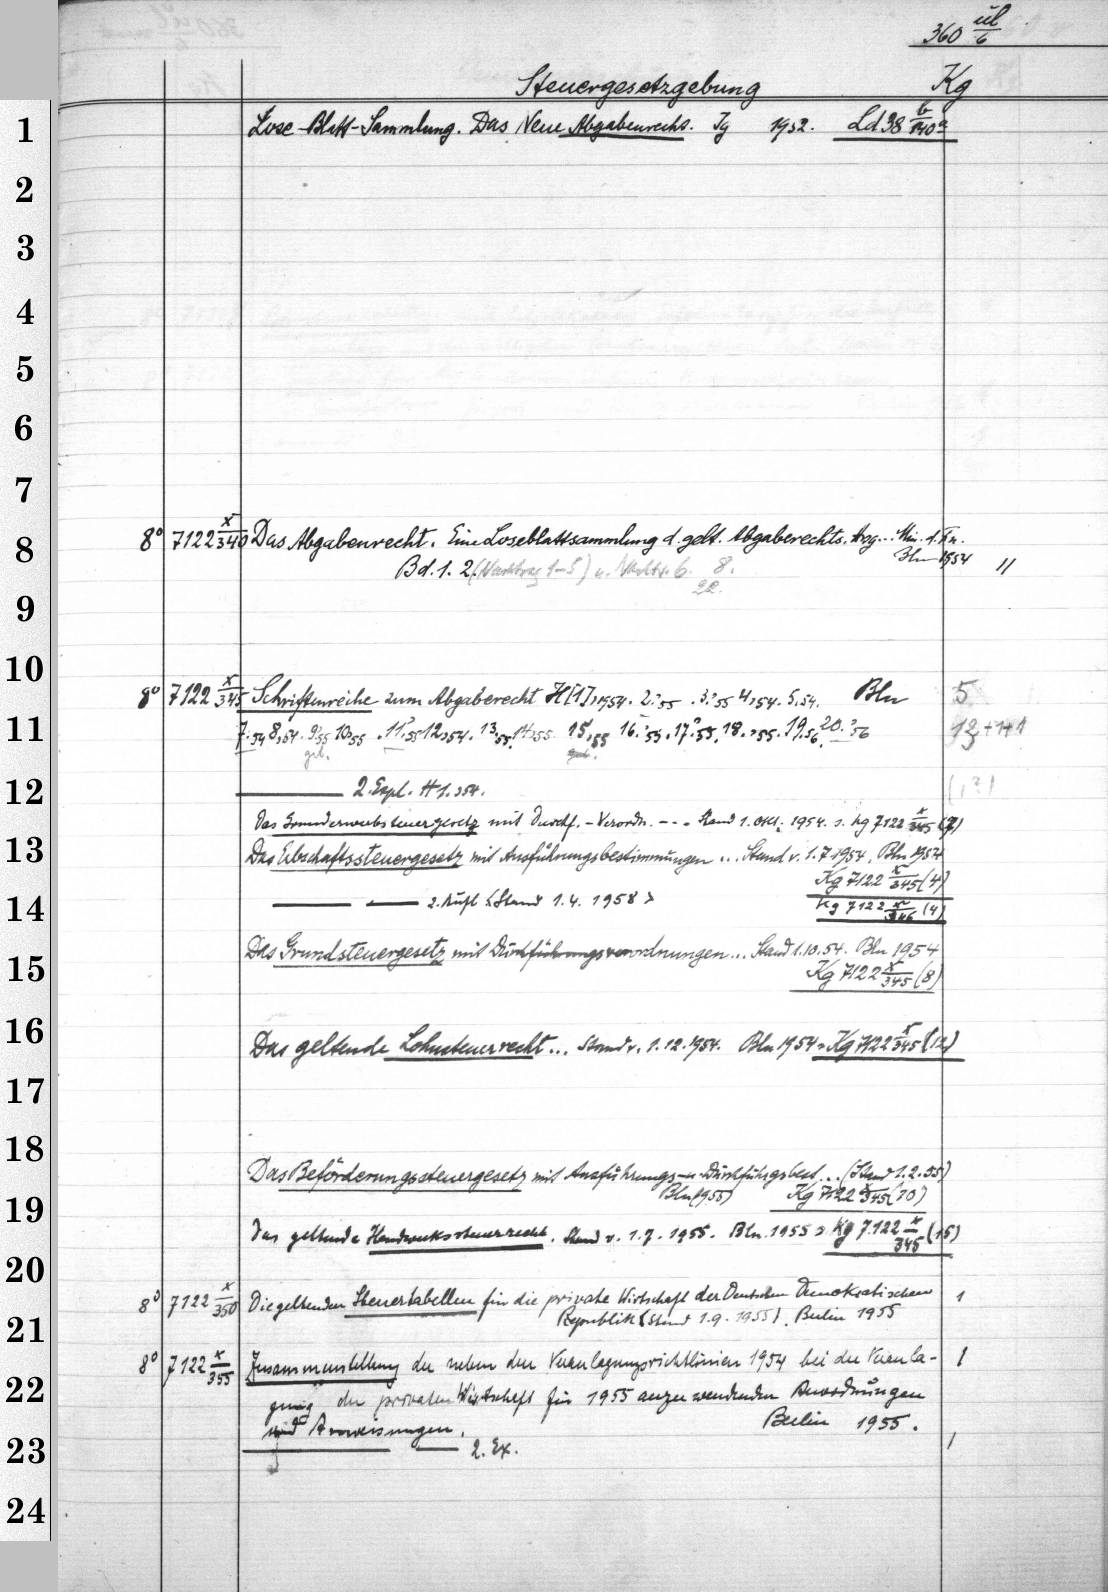 360 ül/6
Steuergesetzgebung Kg
1 Lose-Blatt-Sammlung. Das Neue Abgabenrecht. Jg 1952. Ld 38 b/140a
2
3
4
5
6
7
8 8° 7122 x/340 Das Abgabenrecht. Eine Loseblattsammlung d. gelt. Abgaberechts. Hrsg... Min. d. Fin.
Bln 1954
Bd. 1. 2. (Nachtrag 1-5) u. Nachtr. 6. 8. 11
22.
9
10 8° 7122 x/345 Schriftenreihe zum Abgaberecht H [1], 1954. 2.55. 3.55 4,54. 5,54. Bln 5
11 7.54 8,54. 9,55 10,55. 11,55 12,54. 13,55. 14,55. 15,55 16.55. 17.55. 18.55. 19.56. 20.56
geb. geb.
12 2. Expl. H 1.54.
Das Grunderwerbsteuergesetz mit Durchf.-Verordn. --- Stand 1. Okt. 1954. s. Kg 7122 x/345 (7)
13 Das Erbschaftssteuergesetz mit Ausführungsbestimmungen ... Stand v. 1.7.1954, Bln 1954
Kg 7122 x/345 (4)
14 2. Aufl <Stand 1.4.1958> Kg 7122 x/346 (4)
Das Grundsteuergesetz mit Durchführungsverordnungen... Stand 1.10.54. Bln 1954
15 Kg 7122 x/345 (8)
16 Das geltende Lohnsteuerrecht... Stand v. 1.12.1954. Bln 1954 = Kg 7122 x/345 (12)
17
18
Das Beförderungssteuergesetz mit Ausführungs- u. Durchführgsbest... (Stand 1.2.55)
19 Bln (1955) Kg 7122 x/345 (10)
Das geltende Handwerksteuerrecht. Stand v. 1.7.1955. Bln. 1955 = Kg 7122 x/345 (15)
20
8° 7122 x/350 Die geltenden Steuertabellen für die private Wirtschaft der Deutschen Demokratischen 1
21 Republik (Stand 1.9.1955). Berlin 1955
8° 7122 x/355 Zusammenstellung der neben den Veranlagungsrichtlinien 1954 bei der Veranla- 1
22 gung der privaten Wirtschaft für 1955 anzuwendenden Anordnungen
und Anweisungen. Berlin 1955.
23 2. Ex. 1
24